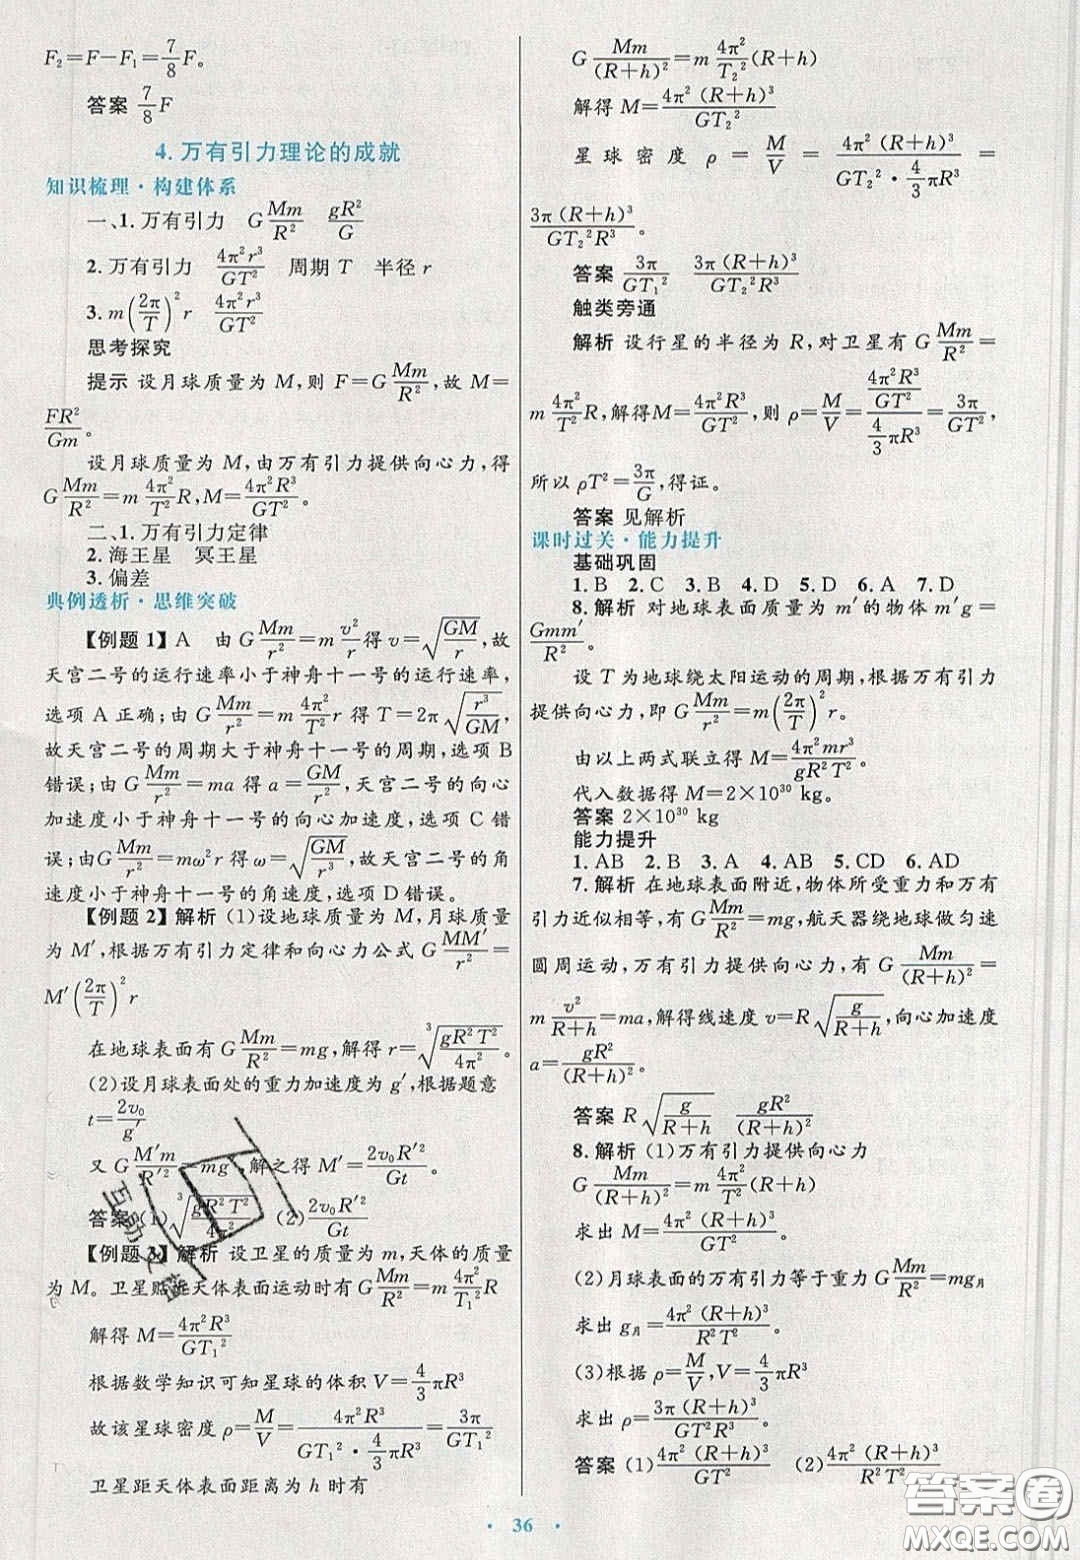 F₂=F−F₁=7/8F。
答案 7/8F
4.万有引力理论的成就
知识梳理·构建体系
一、1.万有引力 G Mm/R² gR²/G
2.万有引力 4π²r³/GT² 周期T 半径r
3.m(2π/T)²r 4π²r³/GT²
思考探究
提示 设月球质量为M,则F=G Mm/R²,故M=
FR²/Gm。
设月球质量为M,由万有引力提供向心力,得
G Mm/R²=m 4π²/T² R,M=4π²R³/GT²。
二、1.万有引力定律
2.海王星 冥王星
3.偏差
典例透析·思维突破
【例题1】A 由G Mm/r²=m v²/r得v=√(GM/r),故
天宫二号的运行速率小于神舟十一号的运行速率,
选项A正确;由G Mm/r²=m 4π²/T² r得T=2π√(r³/GM),
故天宫二号的周期大于神舟十一号的周期,选项B
错误;由G Mm/r²=ma得a=GM/r²,天宫二号的向心
加速度小于神舟十一号的向心加速度,选项C错
误;由G Mm/r²=mω²r得ω=√(GM/r³),故天宫二号的角
速度小于神舟十一号的角速度,选项D错误。
【例题2】解析 (1)设地球质量为M,月球质量
为M′,根据万有引力定律和向心力公式G MM′/r²=
M′(2π/T)²r
在地球表面有G Mm/R²=mg,解得r=∛(gR²T²/4π²)。
(2)设月球表面处的重力加速度为g′,根据题意
t=2v₀/g′
又G M′m/R′²=mg′,解之得M′=2v₀R′²/Gt。
答案 (1)∛(gR²T²/4π²) (2)2v₀R′²/Gt
【例题3】解析 设卫星的质量为m,天体的质量
为M。卫星贴近天体表面运动时有G Mm/R²=m 4π²/T₁² R
解得M=4π²R³/GT₁²
根据数学知识可知星球的体积V=4/3πR³
故该星球密度ρ=M/V=4π²R³/(GT₁²·4/3πR³)=3π/GT₁²
卫星距天体表面距离为h时有
G Mm/(R+h)²=m 4π²/T₂²(R+h)
解得M=4π²(R+h)³/GT₂²
星球密度ρ=M/V=4π²(R+h)³/(GT₂²·4/3πR³)=
3π(R+h)³/GT₂²R³。
答案 3π/GT₁² 3π(R+h)³/GT₂²R³
触类旁通
解析 设行星的半径为R,对卫星有G Mm/R²=
m 4π²/T² R,解得M=4π²R³/GT²,则ρ=M/V=(4π²R³/GT²)/(4/3πR³)=3π/GT²,
所以ρT²=3π/G,得证。
答案 见解析
课时过关·能力提升
基础巩固
1.B 2.C 3.B 4.D 5.D 6.A 7.D
8.解析 对地球表面质量为m′的物体m′g=
Gmm′/R²。
设T为地球绕太阳运动的周期,根据万有引力
提供向心力,即G Mm/r²=m(2π/T)²r。
由以上两式联立得M=4π²mr³/gR²T²。
代入数据得M=2×10³⁰ kg。
答案 2×10³⁰ kg
能力提升
1.AB 2.B 3.A 4.AB 5.CD 6.AD
7.解析 在地球表面附近,物体所受重力和万有
引力近似相等,有G Mm/R²=mg,航天器绕地球做匀速
圆周运动,万有引力提供向心力,有G Mm/(R+h)²=
m v²/(R+h)=ma,解得线速度v=R√(g/(R+h)),向心加速度
a=gR²/(R+h)²。
答案 R√(g/(R+h)) gR²/(R+h)²
8.解析 (1)万有引力提供向心力
G Mm/(R+h)²=m 4π²/T²(R+h)
求出M=4π²(R+h)³/GT²。
(2)月球表面的万有引力等于重力G Mm/R²=mg月
求出g月=4π²(R+h)³/R²T²。
(3)根据ρ=M/V,V=4/3πR³
求出ρ=3π(R+h)³/GT²R³。
答案 (1)4π²(R+h)³/GT² (2)4π²(R+h)³/R²T²
·36·
答案圈
MXQE.COM